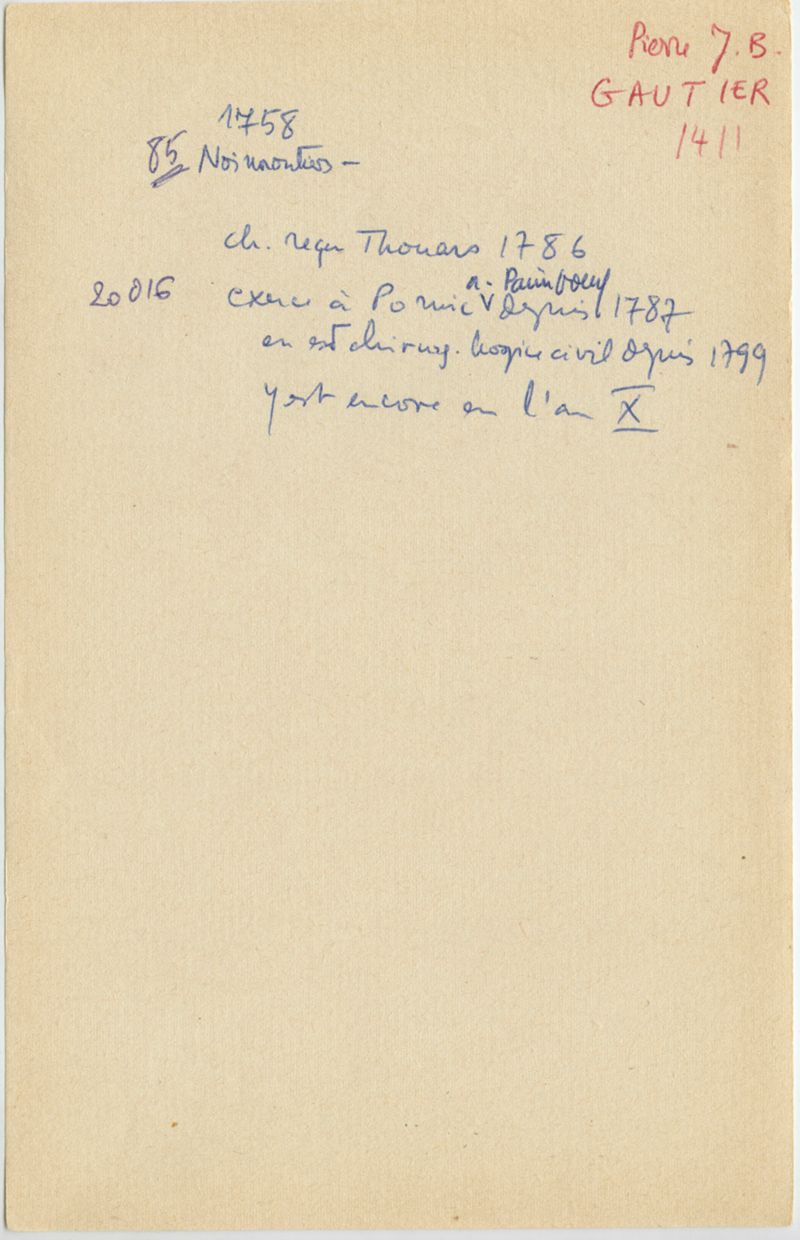 Pierre J. B.
GAUTIER
1411
1758
85 Noirmoutiers -
ch. reçu Thouars 1786
a. Paimboeuf
20016 exerce à Pornic V depuis 1787
en est chirurg. hospice civil depuis 1799
y est encore en l'an X